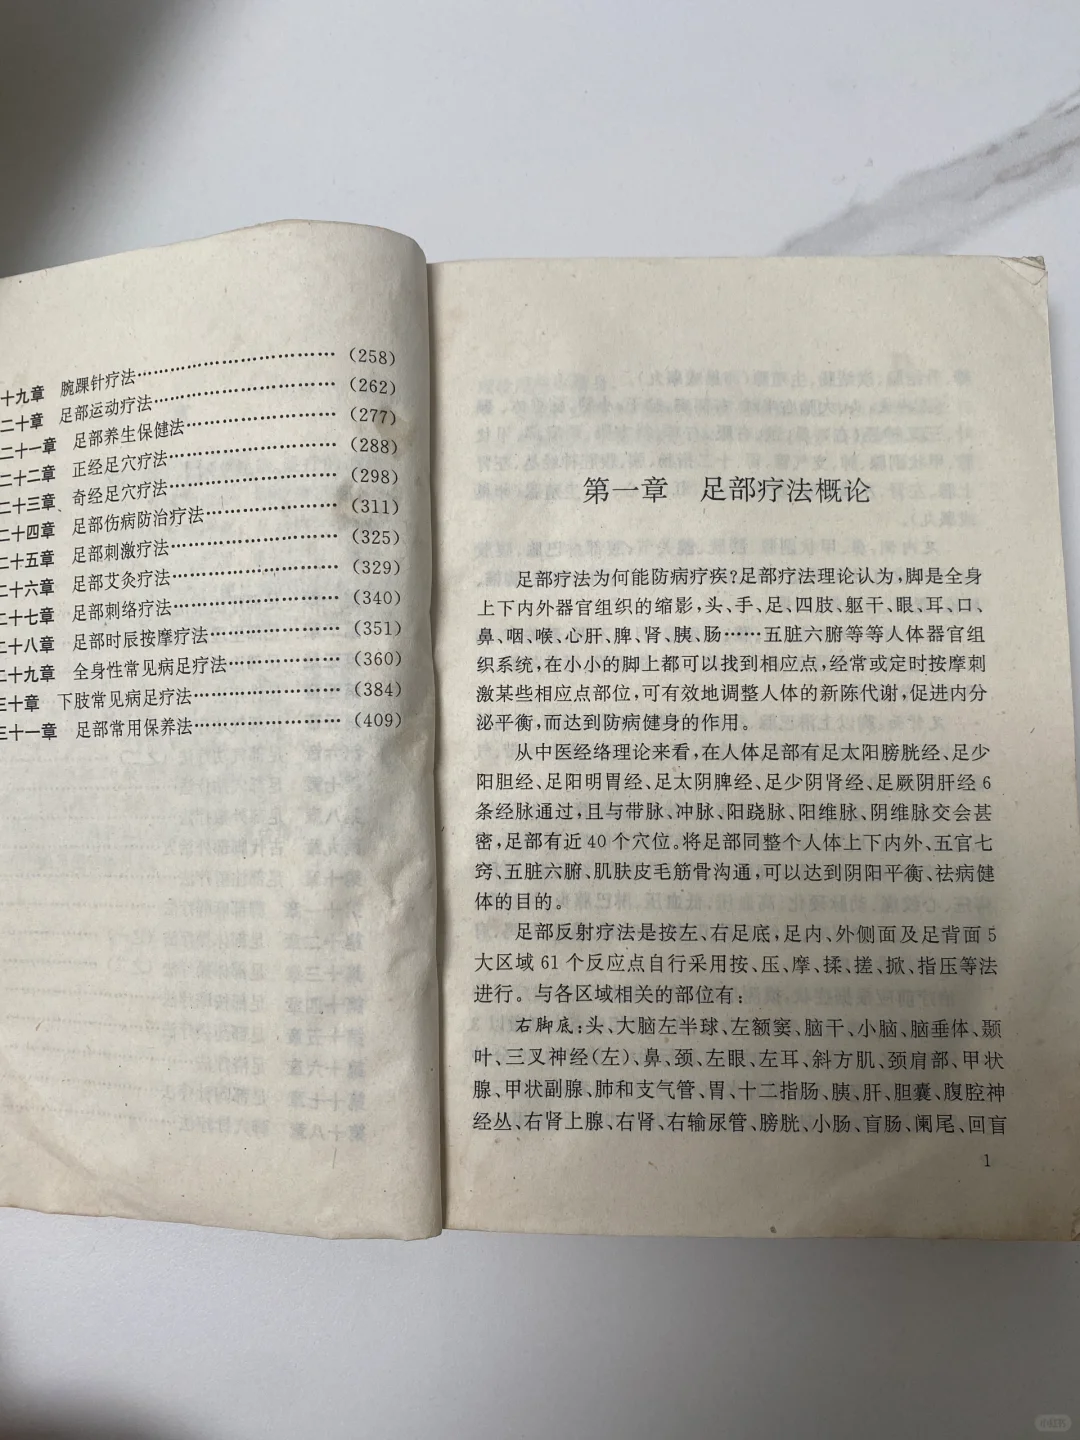 十九章 腕踝针疗法……………………………(258)
二十章 足部运动疗法…………………………(262)
二十一章 足部养生保健法……………………(277)
二十二章 正经足穴疗法………………………(288)
二十三章 奇经足穴疗法………………………(298)
二十四章 足部伤病防治疗法…………………(311)
二十五章 足部刺激疗法………………………(325)
二十六章 足部艾灸疗法………………………(329)
二十七章 足部刺络疗法………………………(340)
二十八章 足部时辰按摩疗法…………………(351)
二十九章 全身性常见病足疗法………………(360)
三十章 下肢常见病足疗法……………………(384)
三十一章 足部常用保养法……………………(409)
第一章 足部疗法概论
足部疗法为何能防病疗疾?足部疗法理论认为,脚是全身
上下内外器官组织的缩影,头、手、足、四肢、躯干、眼、耳、口、
鼻、咽、喉、心肝、脾、肾、胰、肠……五脏六腑等等人体器官组
织系统,在小小的脚上都可以找到相应点,经常或定时按摩刺
激某些相应点部位,可有效地调整人体的新陈代谢,促进内分
泌平衡,而达到防病健身的作用。
从中医经络理论来看,在人体足部有足太阳膀胱经、足少
阳胆经、足阳明胃经、足太阴脾经、足少阴肾经、足厥阴肝经6
条经脉通过,且与带脉、冲脉、阳跷脉、阳维脉、阴维脉交会甚
密,足部有近40个穴位。将足部同整个人体上下内外、五官七
窍、五脏六腑、肌肤皮毛筋骨沟通,可以达到阴阳平衡、祛病健
体的目的。
足部反射疗法是按左、右足底,足内、外侧面及足背面5
大区域61个反应点自行采用按、压、摩、揉、搓、掀、指压等法
进行。与各区域相关的部位有:
右脚底:头、大脑左半球、左额窦、脑干、小脑、脑垂体、颞
叶、三叉神经(左)、鼻、颈、左眼、左耳、斜方肌、颈肩部、甲状
腺、甲状副腺、肺和支气管、胃、十二指肠、胰、肝、胆囊、腹腔神
经丛、右肾上腺、右肾、右输尿管、膀胱、小肠、盲肠、阑尾、回盲
1
小红书